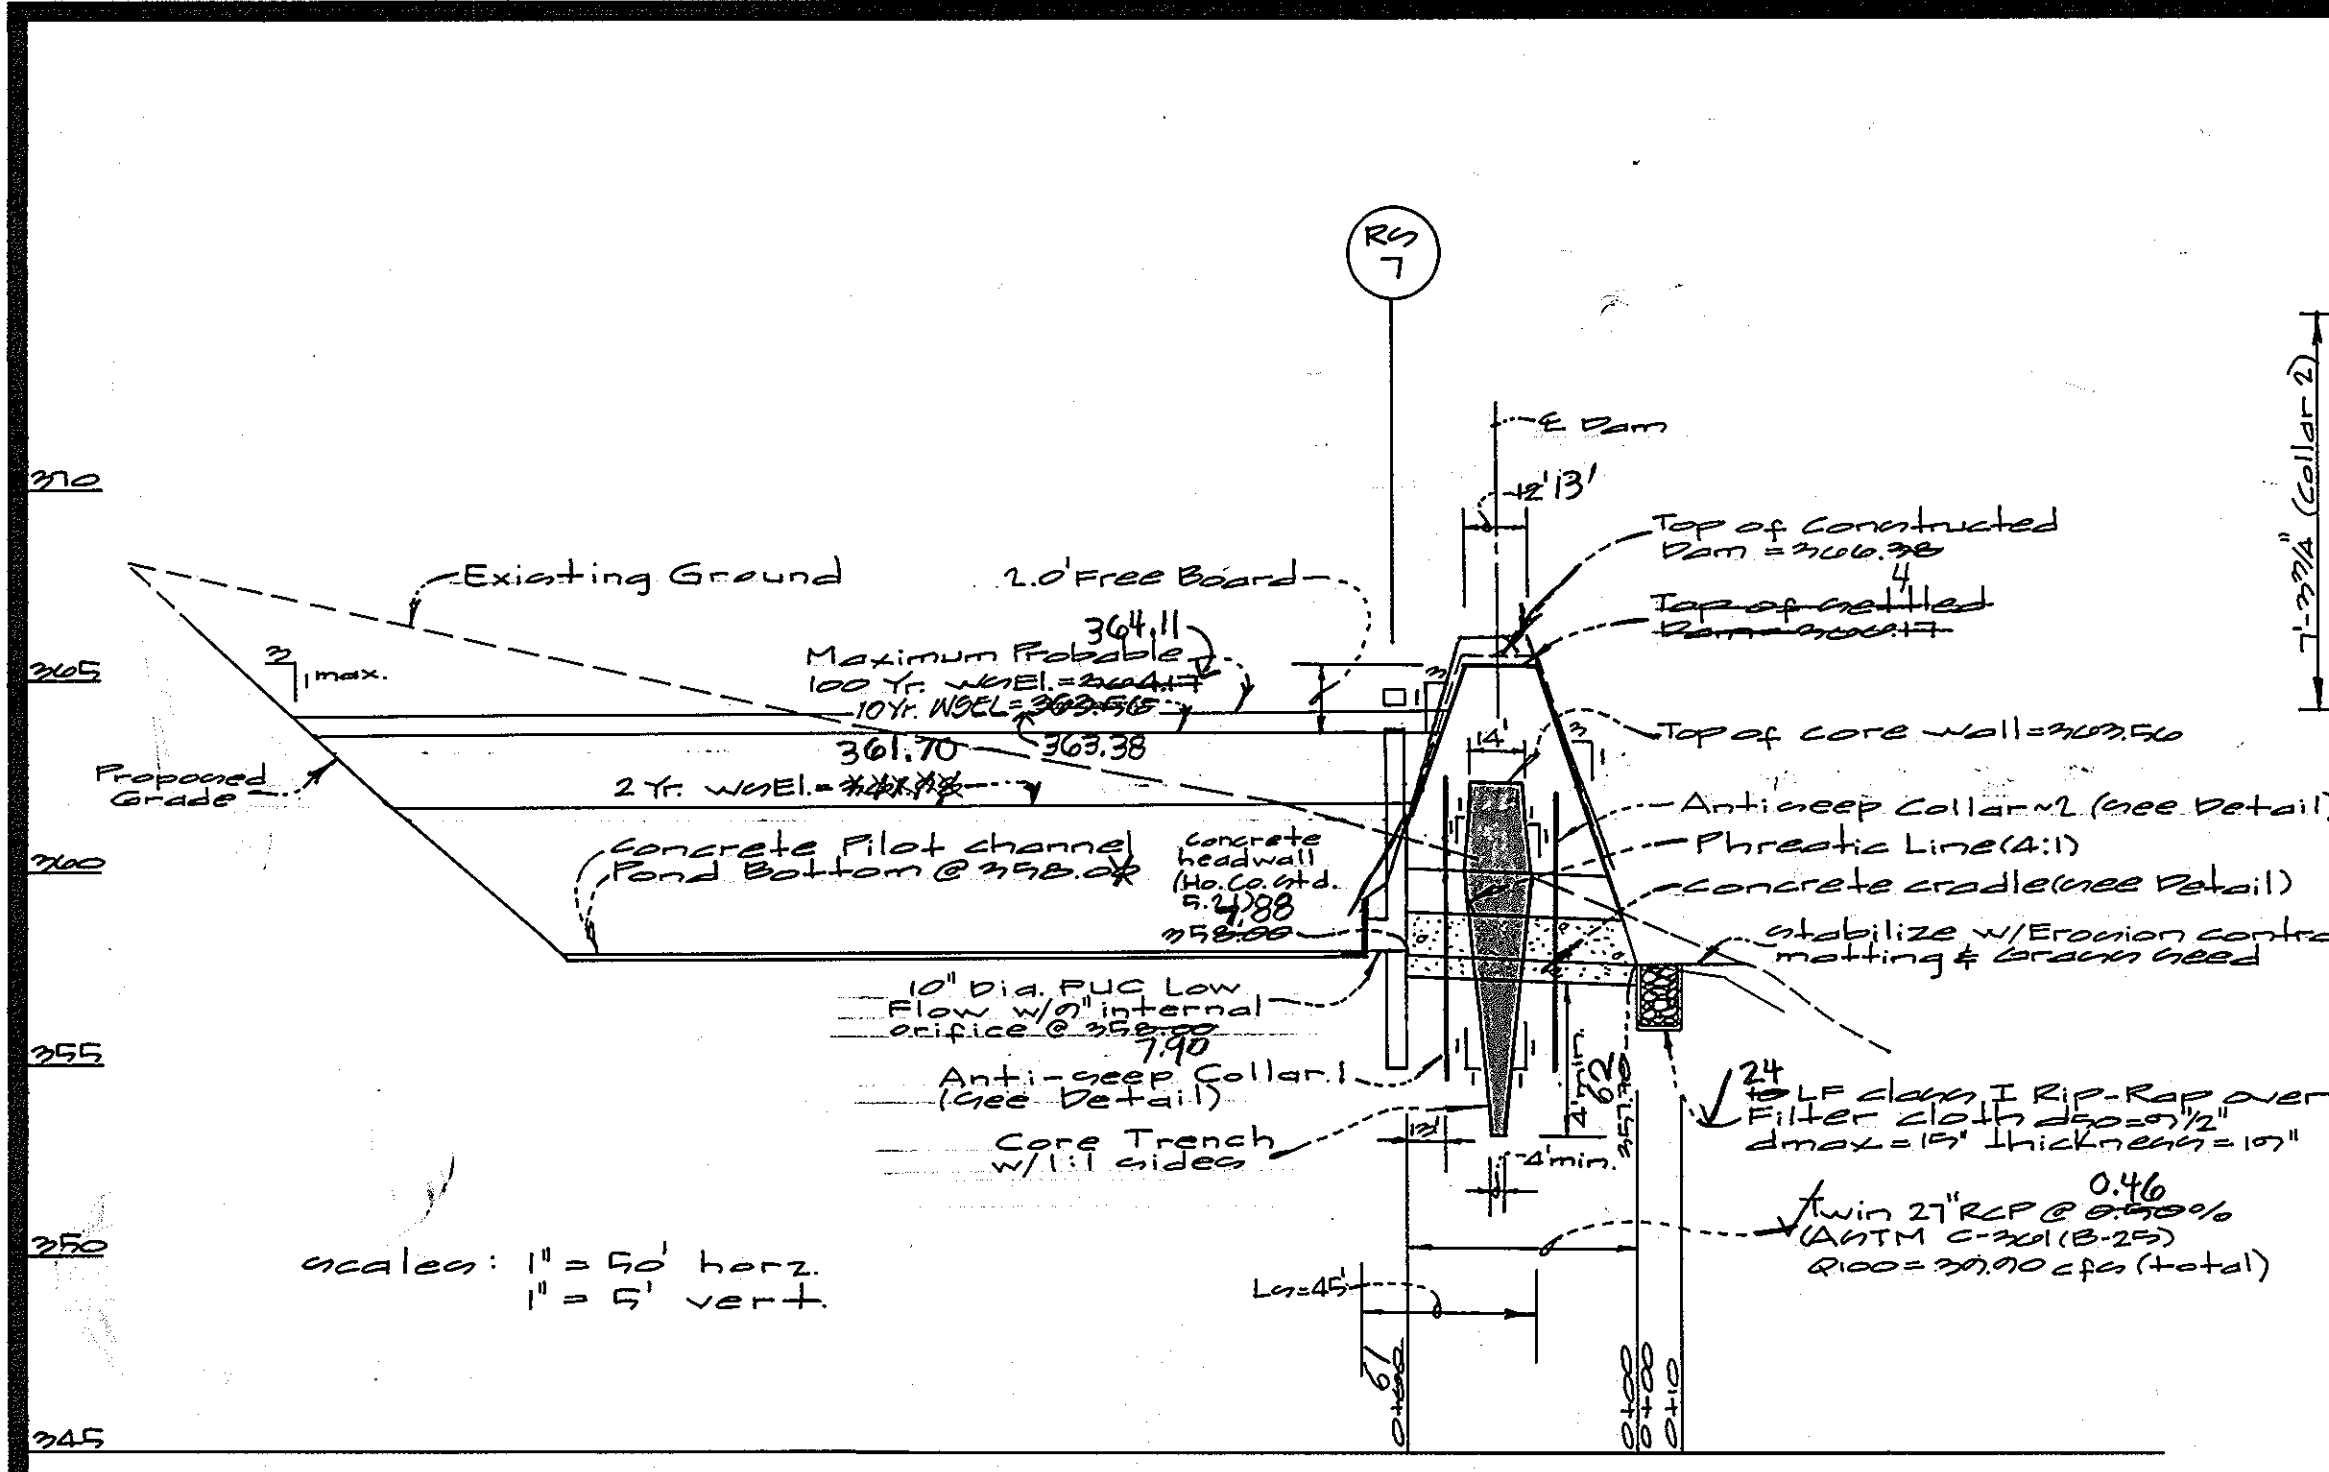 RS
7
7'-3 3/4" (Collar 2)
℄ Dam
12' 13'
370
Top of Constructed
Dam = 366.38
4
Top of Settled
Dam = 366.17
Existing Ground
2.0' Free Board
364.11
Maximum Probable
100 Yr. WSEl. = 364.17
10 Yr. WSEL = 363.56
363.38
3
1 max.
365
3
1
14'
3
1
Top of core wall = 363.56
Proposed
Grade
361.70
2 Yr. WSEl. =
Anti seep Collar ~2 (see Detail)
Phreatic Line (4:1)
Concrete cradle (see Detail)
360
Concrete Pilot channel
Pond Bottom @ 358.0
Concrete
headwall
(Ho. Co. Std.
5.21)
7.88
358.00
Stabilize w/Erosion contro
matting & Grass Seed
10" Dia. PVC Low
Flow w/9" internal
orifice @ 358.00
7.90
355
Anti-seep Collar 1
(See Detail)
Core Trench
w/ 1:1 sides
12'
4' min.
4' min.
62
357.70
24
10 LF class I Rip-Rap over
Filter cloth d50=9 1/2"
dmax = 15" thickness = 19"
0.46
Twin 27" RCP @ 0.50%
(ASTM C-361 (B-25)
Q100 = 39.90 cfs (total)
350
Scales: 1" = 50' horz.
1" = 5' vert.
Ls=45'
61
0+60
0+00
0+00
0+10
345